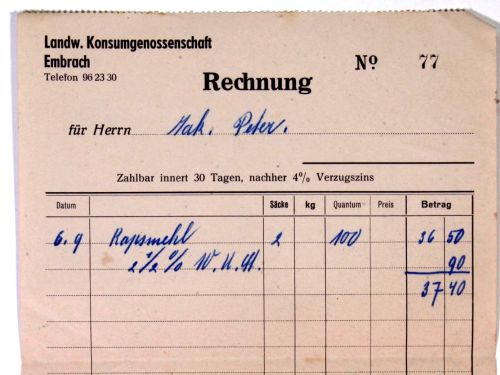 Landw. Konsumgenossenschaft
Embrach
Telefon 96 23 30
Nº 77
Rechnung
für Herrn Jak. Peter.
Zahlbar innert 30 Tagen, nachher 4% Verzugszins
Datum Säcke kg Quantum Preis Betrag
6. 9 Rapsmehl 2 100 36 50
2 1/2 % W. U. St. 90
37 40